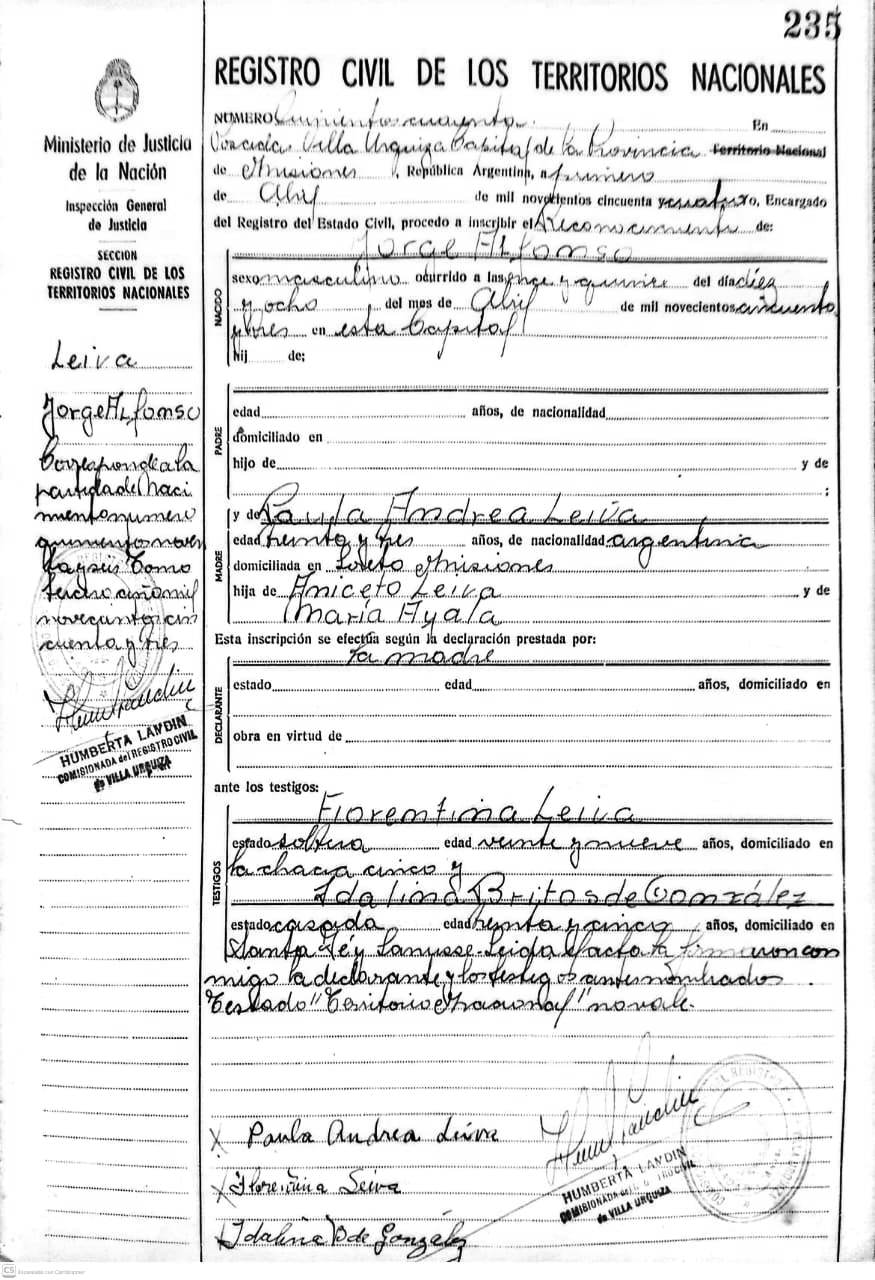 235
Ministerio de Justicia
de la Nación
Inspección General
de Justicia
SECCION
REGISTRO CIVIL DE LOS
TERRITORIOS NACIONALES
Leiva
Jorge Alfonso
Corresponde a la
partida de naci
miento numero
quinientos noven
ta y seis Tomo
tercero año mil
novecientos cin
cuenta y tres
HUMBERTA LANDIN
COMISIONADA del REGISTRO CIVIL
de VILLA URQUIZA
REGISTRO CIVIL DE LOS TERRITORIOS NACIONALES
NUMERO Quinientos cuarenta. En
Posadas Villa Urquiza Capital de la Provincia Territorio Nacional
de Misiones, República Argentina, a primero
de Abril de mil novecientos cincuenta y cuatro, Encargado
del Registro del Estado Civil, procedo a inscribir el Reconocimiento de:
Jorge Alfonso
NACIDO
sexo masculino ocurrido a las once y quince del día diez
y ocho del mes de Abril de mil novecientos cincuenta
y tres en esta Capital
hij de:
PADRE
edad años, de nacionalidad
domiciliado en
hijo de y de
;
MADRE
y de Paula Andrea Leiva
edad treinta y tres años, de nacionalidad argentina
domiciliada en Loreto Misiones
hija de Aniceto Leiva y de
María Ayala
Esta inscripción se efectúa según la declaración prestada por:
la madre
DECLARANTE
estado edad años, domiciliado en
obra en virtud de
ante los testigos:
TESTIGOS
Florentina Leiva
estado soltera edad veinte y nueve años, domiciliado en
la chacra cinco y
Idalina Britos de González
estado casada edad treinta y cinco años, domiciliado en
Santa Fé y Lanusse. Leida el acta la firmaron con
migo la declarante y los testigos antes nombrados.
Testado "Territorio Nacional" no vale.
x Paula Andrea Leiva
x Florentina Leiva
x Idalina B de González
HUMBERTA LANDIN
COMISIONADA del REGISTRO CIVIL
de VILLA URQUIZA
CS Escaneado con CamScanner